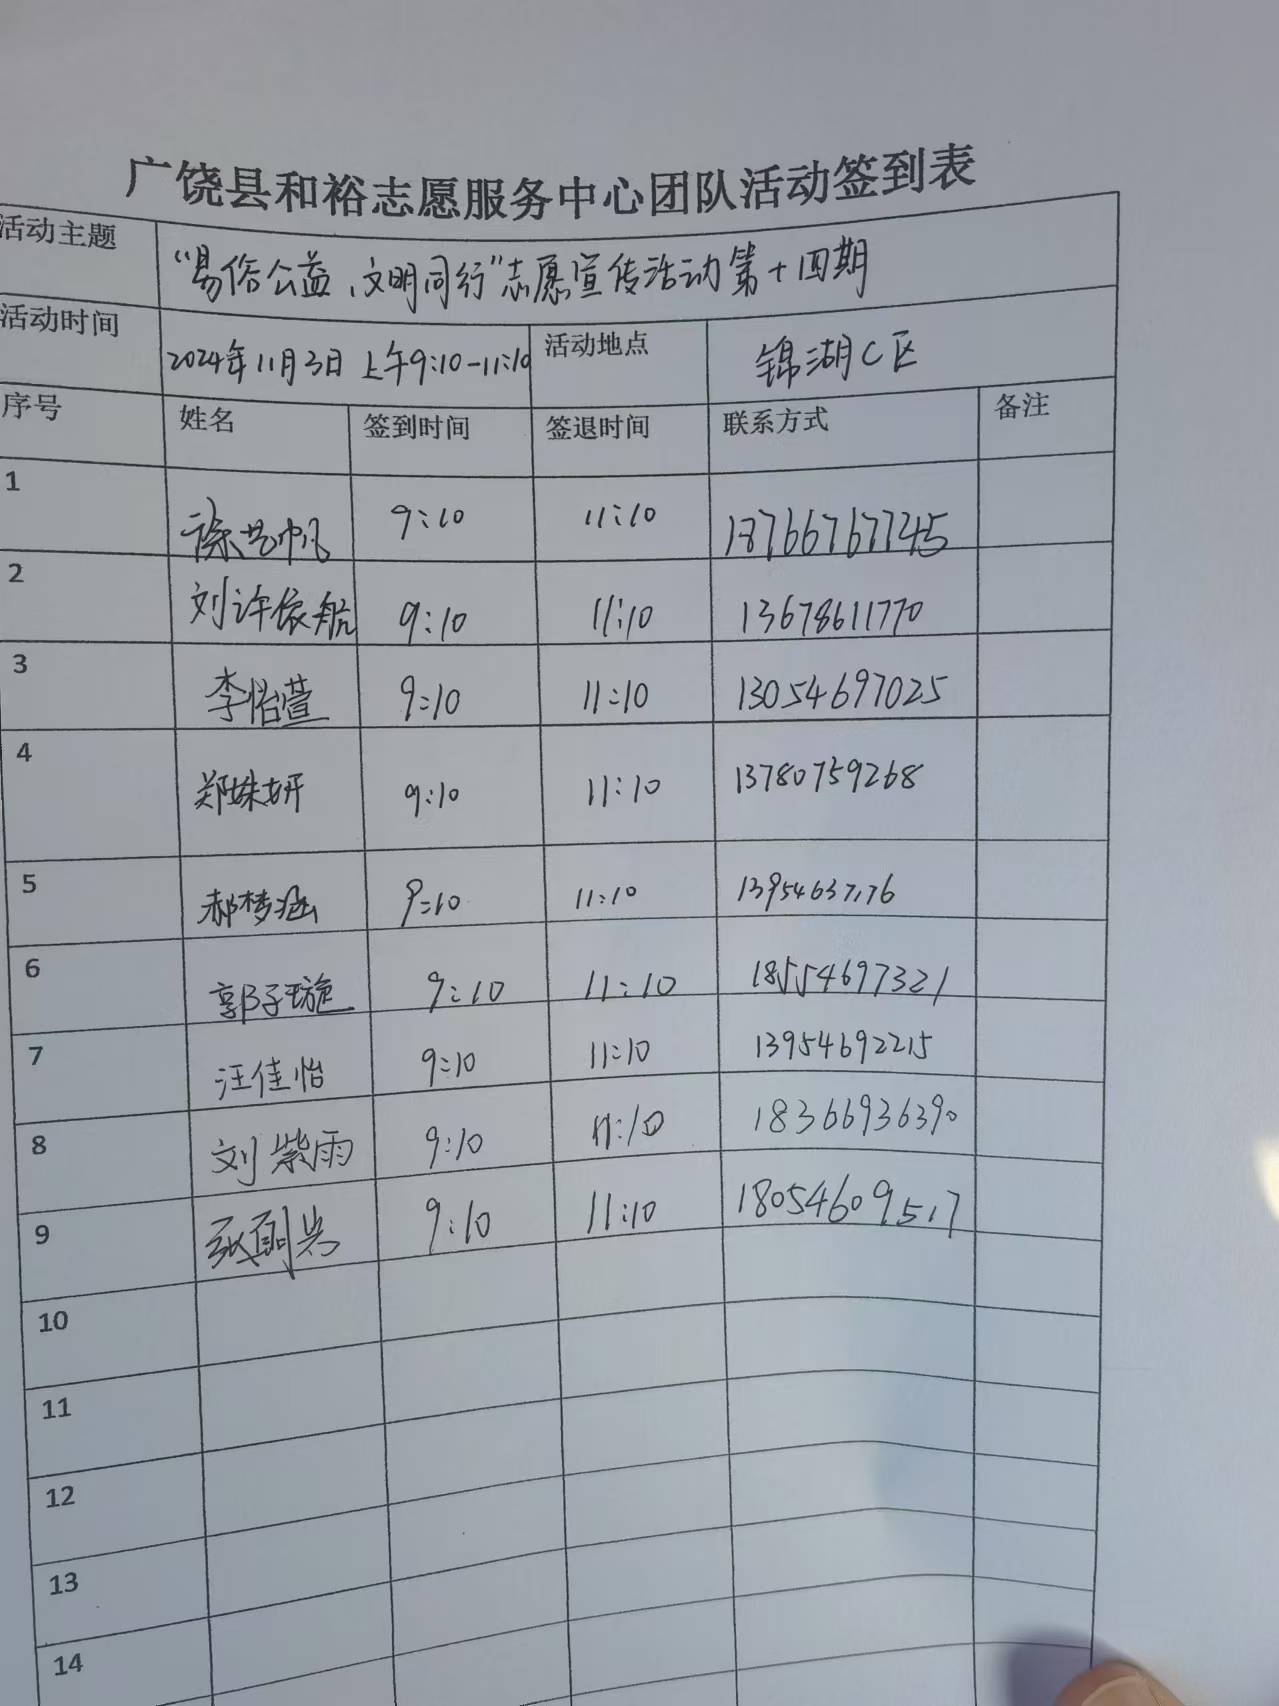 广饶县和裕志愿服务中心团队活动签到表
活动主题 “易俗公益、文明同行”志愿宣传活动第十四期
活动时间 2024年11月3日 上午9:10-11:10 活动地点 锦湖C区
序号 姓名 签到时间 签退时间 联系方式 备注
1 徐艺帆 9:10 11:10 18766767745
2 刘许依航 9:10 11:10 13678611770
3 李怡萱 9:10 11:10 13054697025
4 郑姝妍 9:10 11:10 13780759268
5 郝梦涵 9:10 11:10 13954637176
6 郭子璇 9:10 11:10 18554697321
7 汪佳怡 9:10 11:10 13954692215
8 刘紫雨 9:10 11:10 18366936390
9 张 9:10 11:10 18054609517
10
11
12
13
14